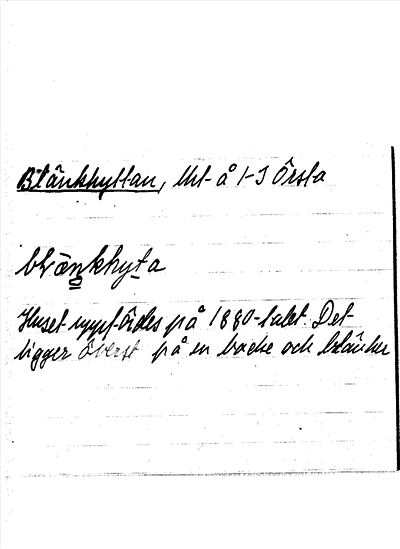 Blänkhyttan, lht å 1-3 Örsta
blänkhyta
Huset uppfördes på 1880-talet. Det
ligger överst på en backe och blänker